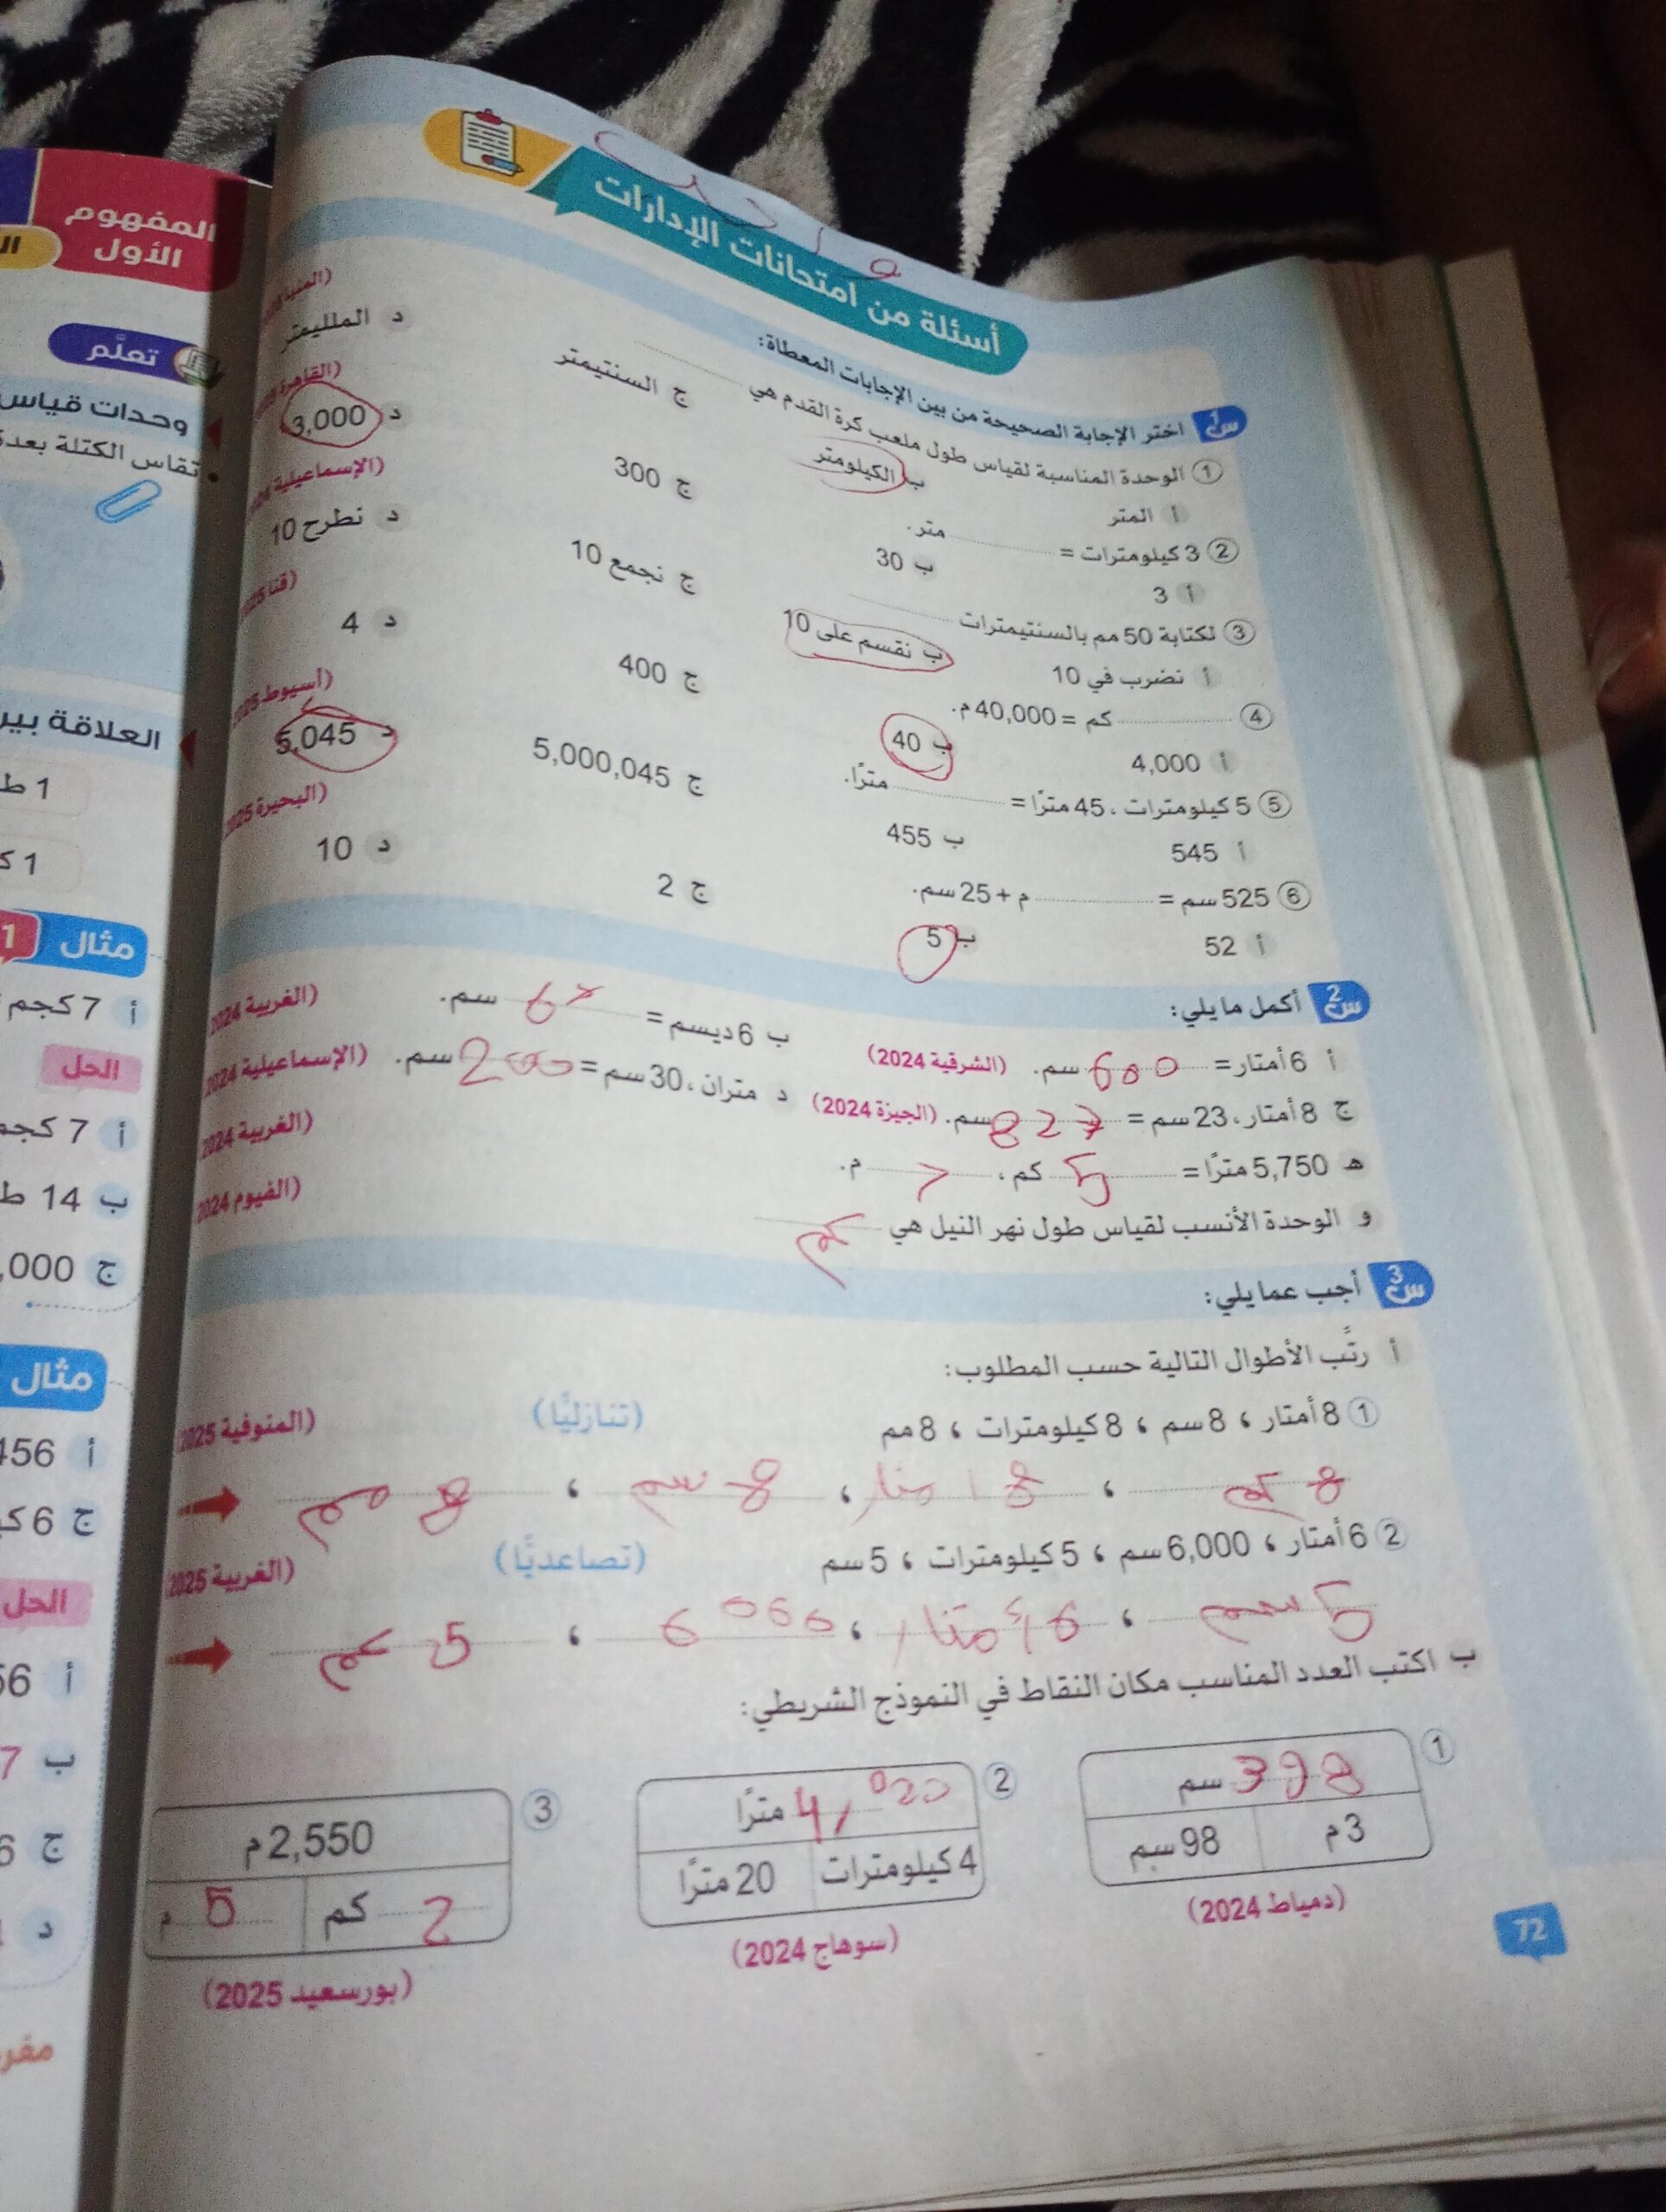 أسئلة من امتحانات الإدارات
س1 اختر الإجابة الصحيحة من بين الإجابات المعطاة:
① الوحدة المناسبة لقياس طول ملعب كرة القدم هي
أ المتر ب الكيلومتر ج السنتيمتر د المللیمتر
② 3 كيلومترات = متر. (القاهرة
أ 3 ب 30 ج 300 د 3,000
③ لكتابة 50 مم بالسنتيمترات (الإسماعيلية
أ نضرب في 10 ب نقسم على 10 ج نجمع 10 د نطرح 10
④ كم = 40,000 م. (قنا
أ 4,000 ب 40 ج 400 د 4
⑤ 5 كيلومترات ، 45 مترًا = مترًا. (أسيوط 2025
أ 545 ب 455 ج 5,000,045 د 5,045
⑥ 525 سم = م + 25 سم. (البحيرة 2025
أ 52 ب 5 ج 2 د 10
س2 أكمل ما يلي:
أ 6 أمتار = 600 سم. (الشرقية 2024)
ب 6 ديسم = سم. (الغربية 2024
ج 8 أمتار، 23 سم = سم. (الجيزة 2024)
د متران، 30 سم = سم. (الإسماعيلية 2024
ه 5,750 مترًا = 5 كم، م. (الغربية 2024
و الوحدة الأنسب لقياس طول نهر النيل هي كم (الفيوم 2024
س3 أجب عما يلي:
أ رتِّب الأطوال التالية حسب المطلوب:
① 8 أمتار ، 8 سم ، 8 كيلومترات ، 8 مم (تنازليًّا) (المنوفية 2025
8 كم ، 8 امتار ، 8 سم ، 8 مم
② 6 أمتار ، 6,000 سم ، 5 كيلومترات ، 5 سم (تصاعديًّا) (الغربية 2025
5 سم ، 6 أمتار ، 6000 ، 5 كم
ب اكتب العدد المناسب مكان النقاط في النموذج الشريطي:
① 398 سم
3 م 98 سم
(دمياط 2024)
② 4,020 مترًا
4 كيلومترات 20 مترًا
(سوهاج 2024)
③ 2,550 م
2 كم 5 م
(بورسعيد 2025)
72
المفهوم
الأول
تعلَّم
وحدات قياس
تقاس الكتلة بعدة
العلاقة بين
1 ط
1 ك
مثال 1
أ 7 كجم
الحل
أ 7 كجم
ب 14 ط
ج 000,
مثال
أ 456
ج 6 ك
الحل
أ 56
ب 7
ج 6
د